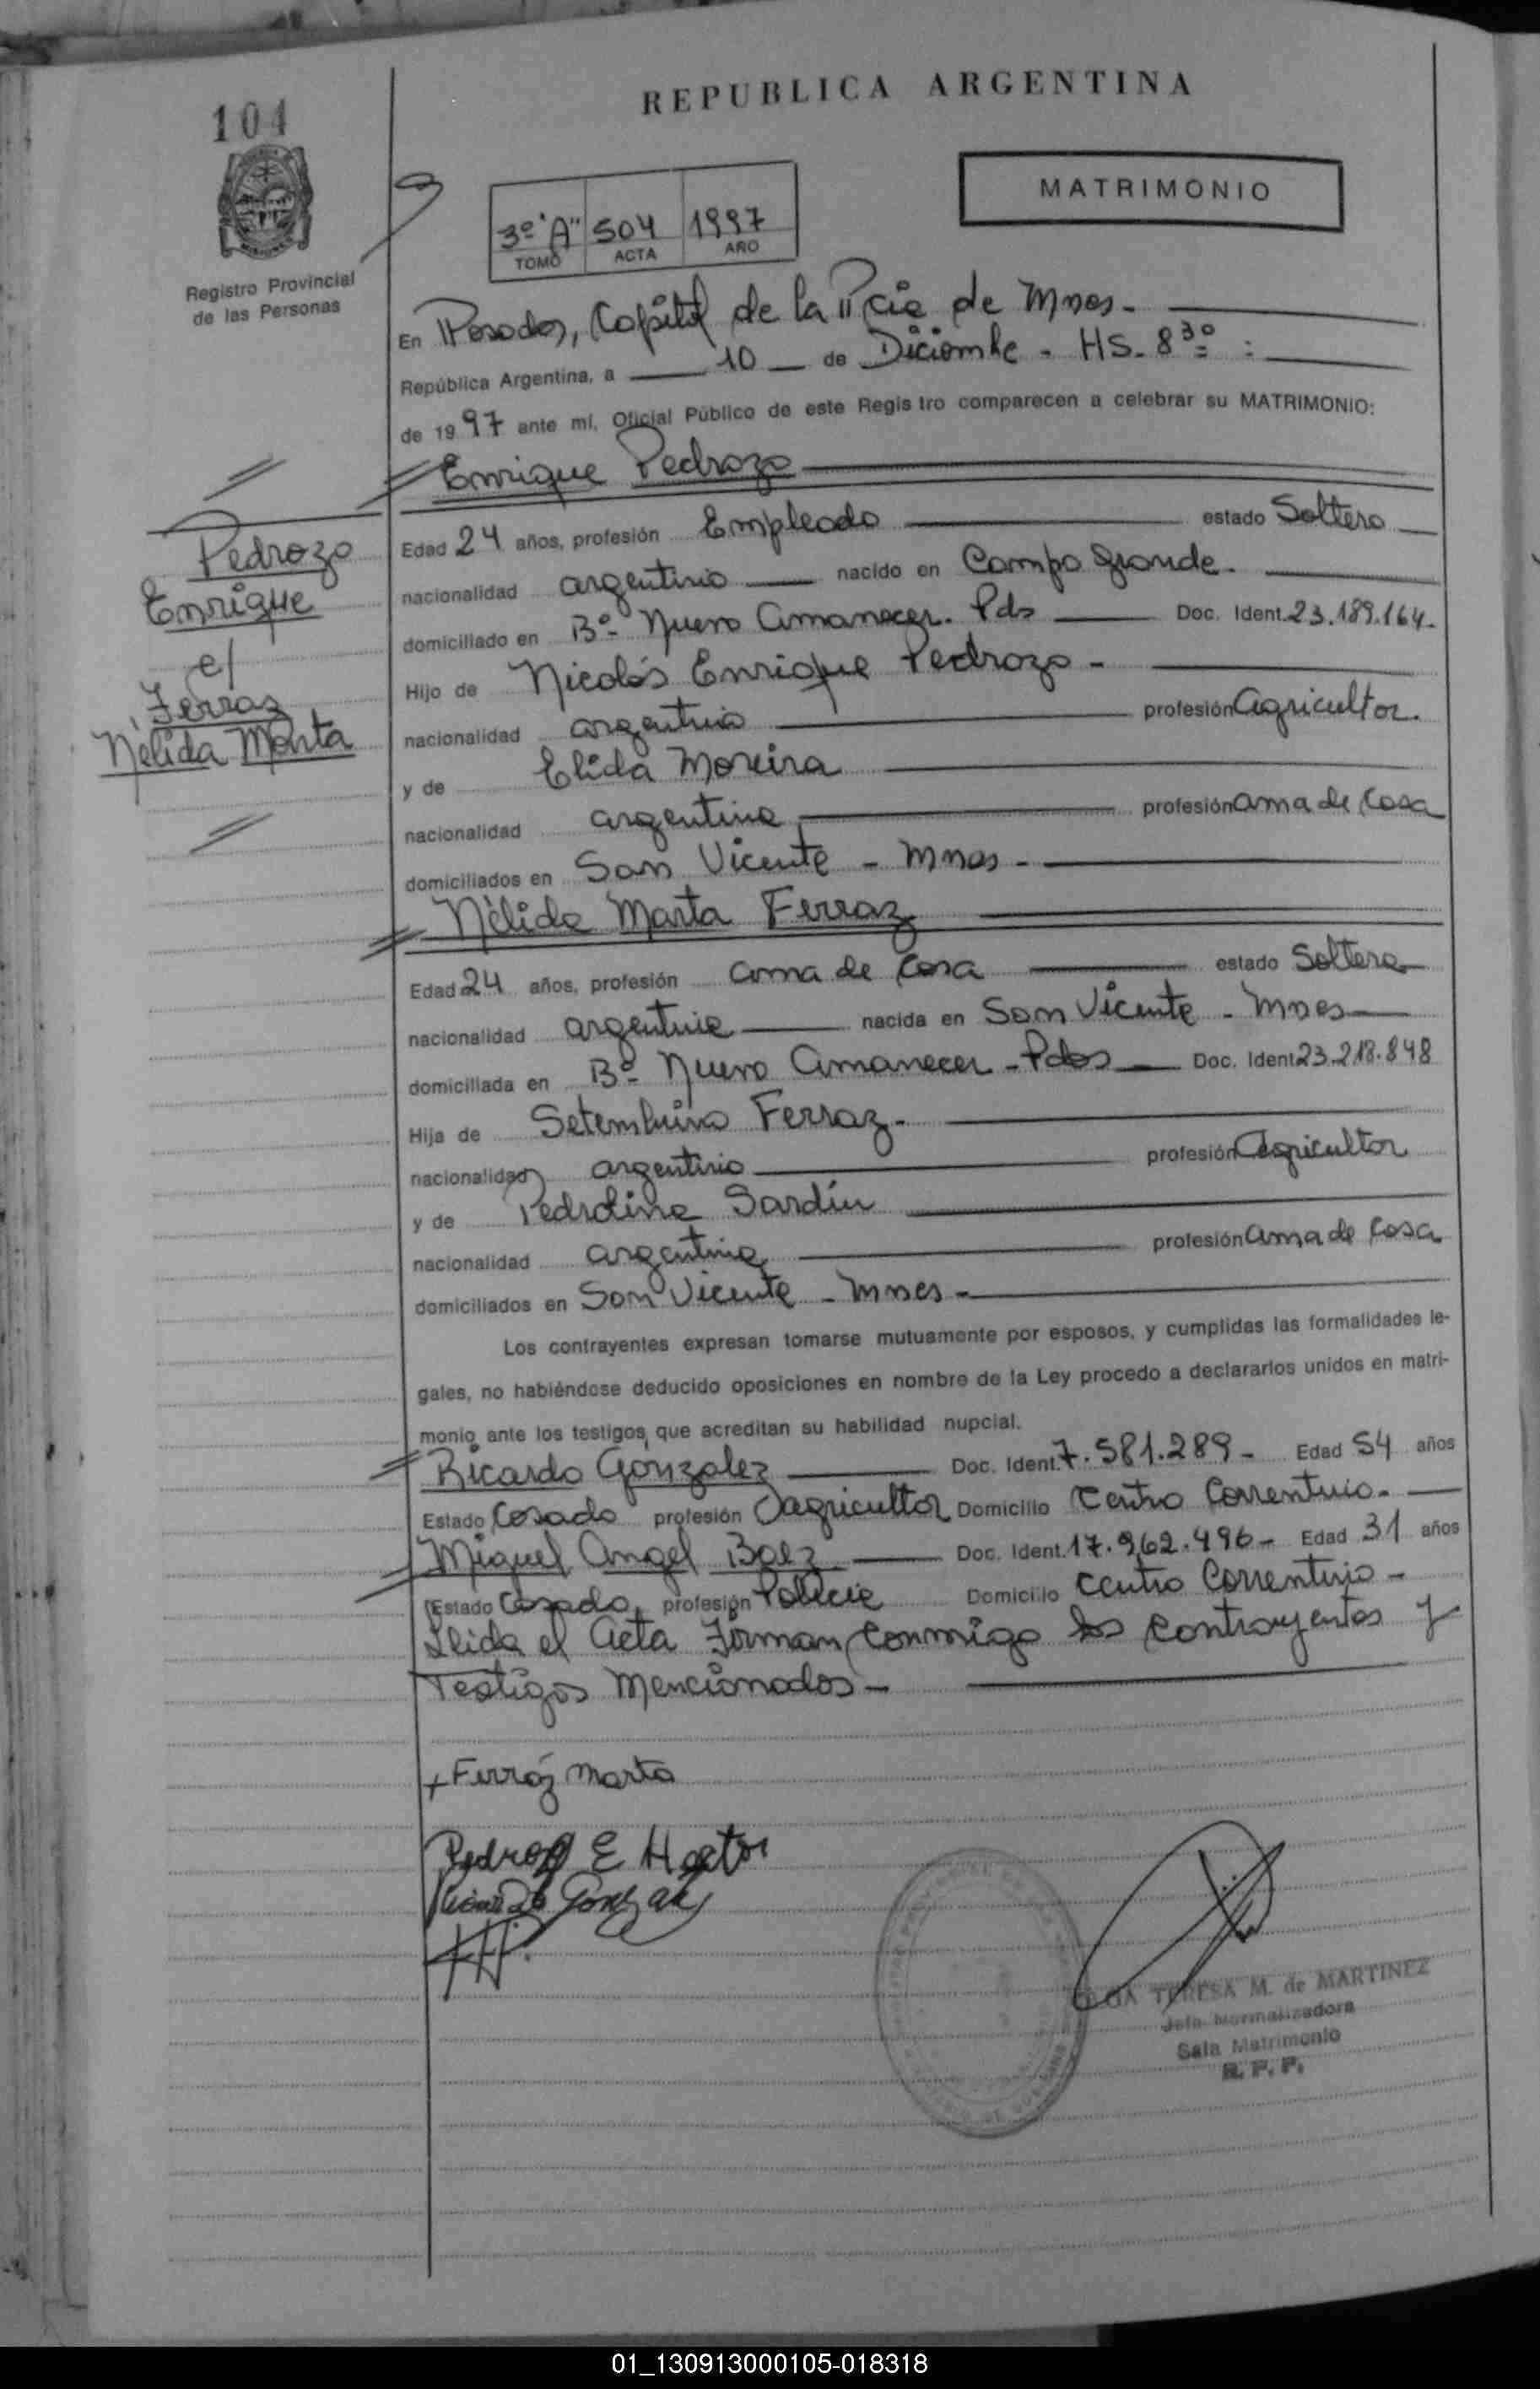 REPUBLICA ARGENTINA
104
MATRIMONIO
3º "A" 504 1997
TOMO ACTA AÑO
Registro Provincial
de las Personas
En Posadas, Capital de la Pcia de Mnes.
República Argentina, a 10 de Diciembre - HS. 8 30
de 1997 ante mí, Oficial Público de este Registro comparecen a celebrar su MATRIMONIO:
Enrique Pedrozo
Pedrozo
Enrique
c/
Ferraz
Nélida Marta
Edad 24 años, profesión Empleado estado Soltero
nacionalidad argentino nacido en Campo Grande.
domiciliado en Bº Nuevo Amanecer. Pds Doc. Ident. 23.189.164.
Hijo de Nicolás Enrique Pedrozo -
nacionalidad argentino profesión agricultor.
y de Elida Moreira
nacionalidad argentina profesión ama de casa
domiciliados en San Vicente - Mnes -
Nélida Marta Ferraz
Edad 24 años, profesión ama de casa estado Soltera
nacionalidad argentina nacida en San Vicente - Mnes
domiciliada en Bº Nuevo Amanecer - Pdas Doc. Ident 23.218.848
Hija de Setembrino Ferraz -
nacionalidad argentino profesión agricultor
y de Pedrolina Sardin
nacionalidad argentina profesión ama de casa
domiciliados en San Vicente - Mnes -
Los contrayentes expresan tomarse mutuamente por esposos, y cumplidas las formalidades le-
gales, no habiéndose deducido oposiciones en nombre de la Ley procedo a declararlos unidos en matri-
monio ante los testigos que acreditan su habilidad nupcial.
Ricardo Gonzalez Doc. Ident. 7.581.289 - Edad 54 años
Estado Casado profesión agricultor Domicilio Centro Correntino.
Miguel Angel Baez Doc. Ident. 17.962.496 - Edad 31 años
Estado Casado profesión Policia Domicilio Centro Correntino -
Leida el Acta Firman conmigo los contrayentes y
Testigos Mencionados -
+ Ferráz Marta
Pedrozo E Hector
Ricardo Gonzalez
TERESA M. de MARTINEZ
Jefa Normalizadora
Sala Matrimonio
R. P. P.
01_130913000105-018318